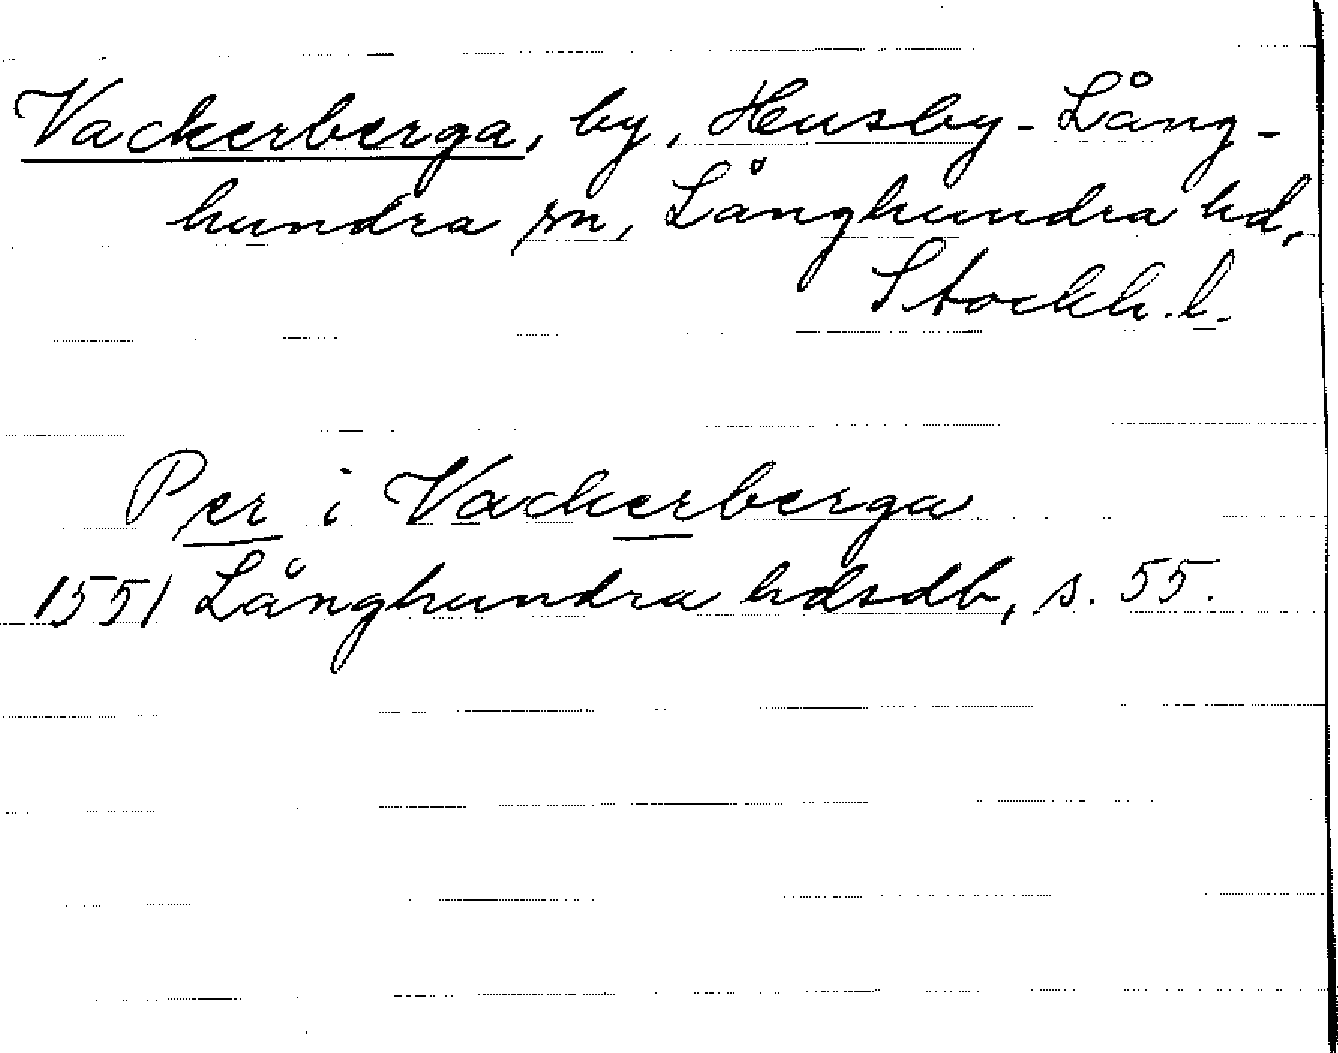 Vackerberga, by, Husby-Lång-
hundra sn, Långhundra hd,
Stockh. l.
Per i Vackerberga
1551 Långhundra hdsdb, s. 55.